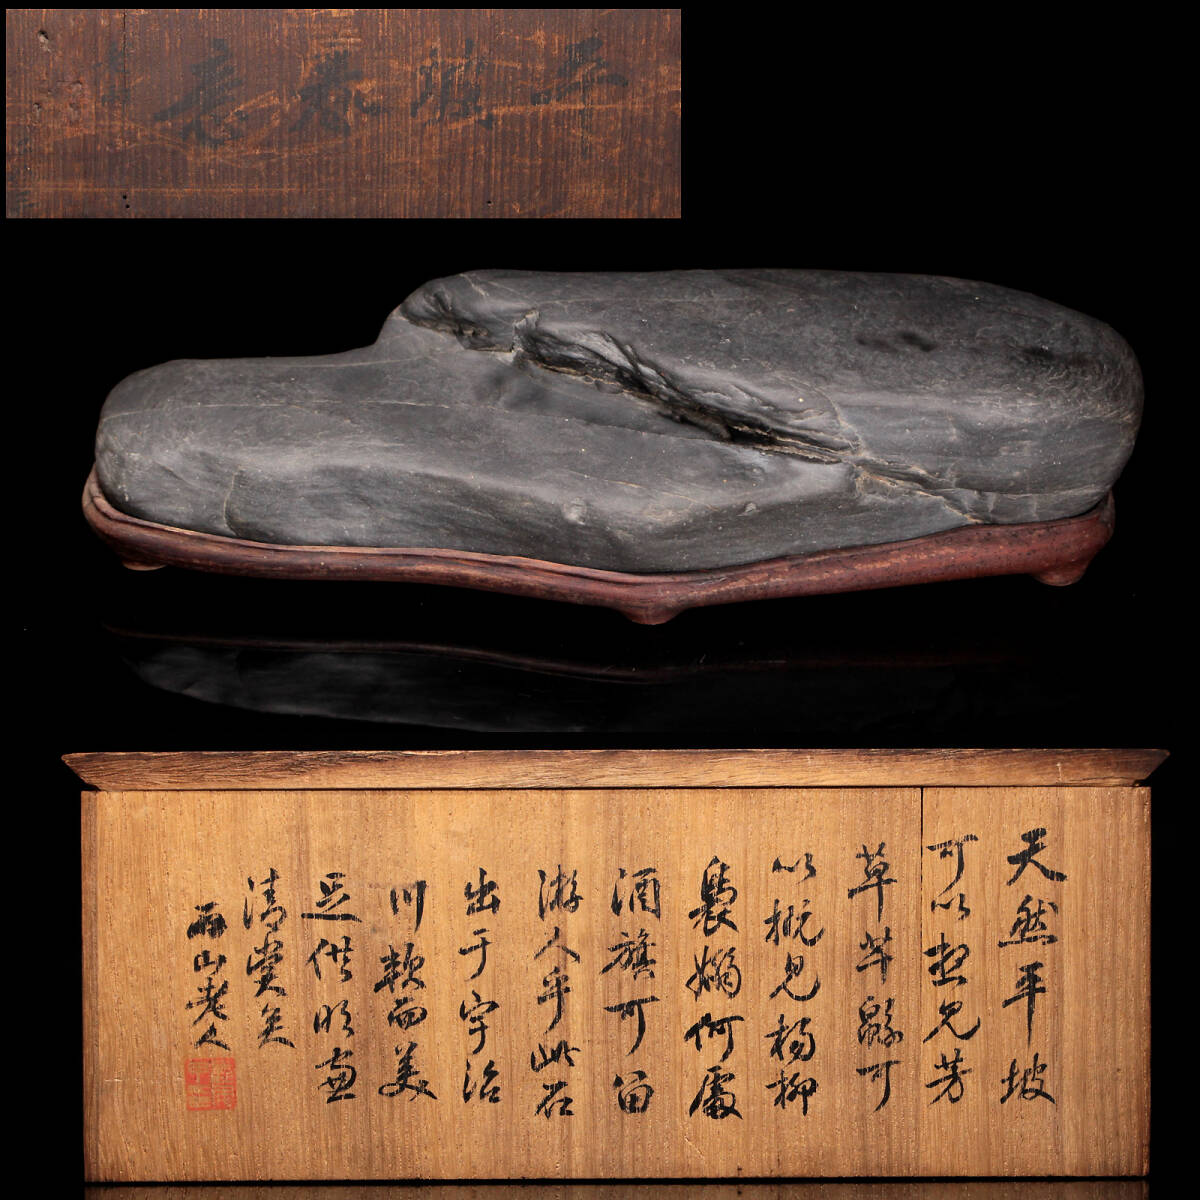 平坡春
天然平坡
可以想見芳
草芊緜可
以概見楊柳
裊嫋何處
酒旗可留
游人乎此石
出于宇治
川軟而美
足供明窓
清賞矣
雨山老人